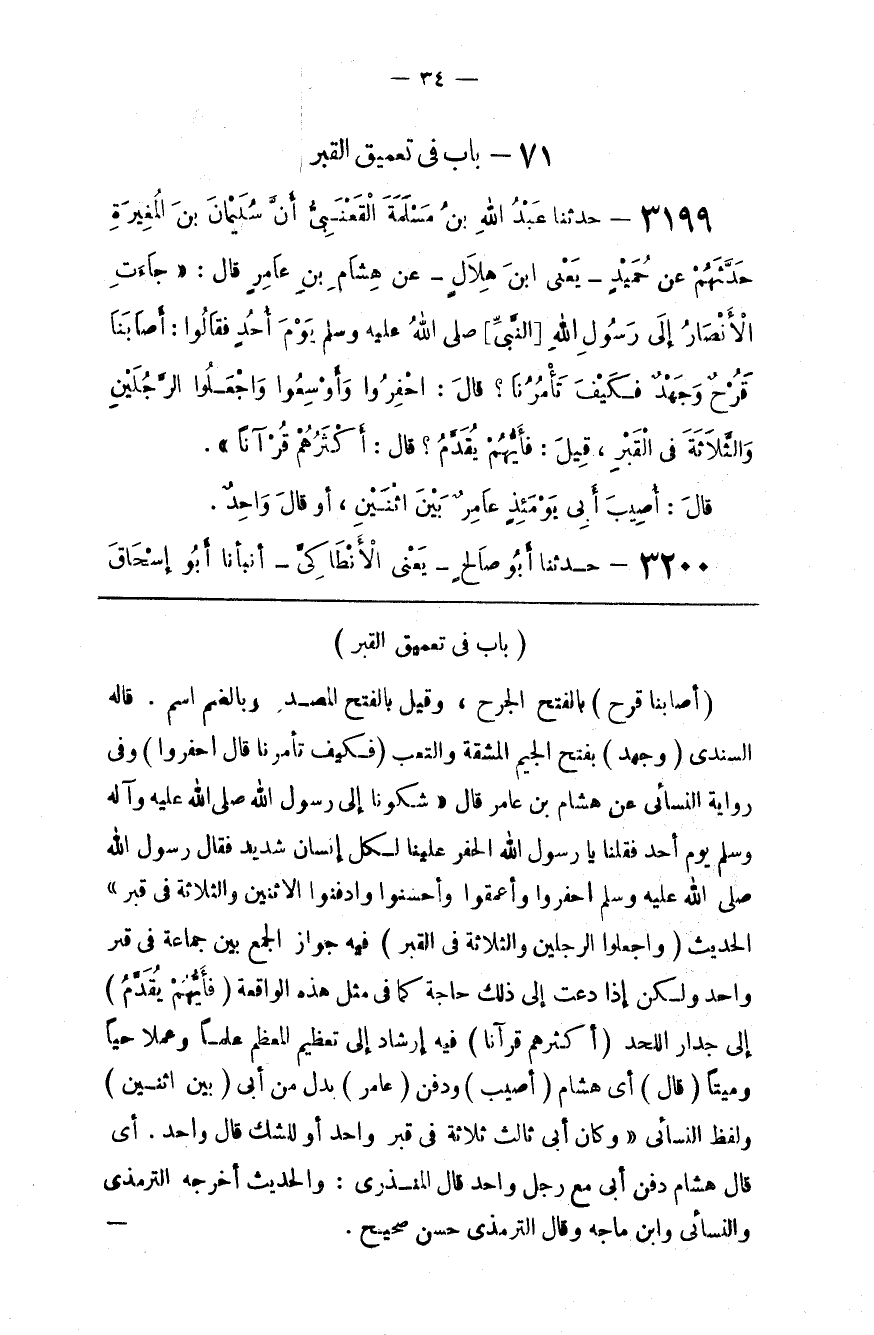 — ٣٤ —
٧١ – باب فى تعميق القبر
٣١٩٩ – حدثنا عَبْدُ اللهِ بنُ مَسْلَمَةَ الْقَعْنَبِىُّ أَنَّ سُلَيْمانَ بنَ الْمُغِيرَةِ
حَدَّثَهُمْ عن حُمَيْدٍ – يَعْنى ابنَ هِلَالٍ – عن هِشَامِ بنِ عَامِرٍ قال : « جاءَتِ
الْأَنْصَارُ إِلَى رَسُولِ اللهِ [النَّبِىِّ] صلى اللهُ عليه وسلم يَوْمَ أُحُدٍ فقَالُوا : أَصَابَنَا
قَرْحٌ وَجَهْدٌ فَكَيْفَ تَأْمُرُنَا ؟ قالَ : احْفِرُوا وَأَوْسِعُوا وَاجْعَلُوا الرَّجُلَيْنِ
وَالثَّلَاثَةَ فى الْقَبْرِ ، قِيلَ : فأَيُّهُمْ يُقَدَّمُ ؟ قال : أَكْثَرُهُمْ قُرْآنًا » .
قالَ : أُصِيبَ أَبِى يَوْمَئِذٍ عَامِرٌ بَيْنَ اثْنَيْنِ ، أو قالَ وَاحِدٌ .
٣٢٠٠ – حدثنا أَبُو صَالحٍ – يَعْنى الْأَنْطَاكِىَّ – أنبأنا أَبُو إِسْحَاقَ
( باب فى تعميق القبر )
( أصابنا قرح ) بالفتح الجرح ، وقيل بالفتح المصدر وبالضم اسم . قاله
السندى ( وجهد ) بفتح الجيم المشقة والتعب ( فكيف تأمرنا قال احفروا ) وفى
رواية النسائى عن هشام بن عامر قال « شكونا إلى رسول الله صلى الله عليه وآله
وسلم يوم أحد فقلنا يا رسول الله الحفر علينا لكل إنسان شديد فقال رسول الله
صلى الله عليه وسلم احفروا وأعمقوا وأحسنوا وادفنوا الاثنين والثلاثة فى قبر »
الحديث ( واجعلوا الرجلين والثلاثة فى القبر ) فيه جواز الجمع بين جماعة فى قبر
واحد ولكن إذا دعت إلى ذلك حاجة كما فى مثل هذه الواقعة ( فأَيُّهُمْ يُقَدَّمُ )
إلى جدار اللحد ( أكثرهم قرآنا ) فيه إرشاد إلى تعظيم المعظم علماً وعملا حياً
وميتاً ( قال ) أى هشام ( أصيب ) ودفن ( عامر ) بدل من أبى ( بين اثنين )
ولفظ النسائى « وكان أبى ثالث ثلاثة فى قبر واحد أو للشك قال واحد . أى
قال هشام دفن أبى مع رجل واحد قال المنذرى : والحديث أخرجه الترمذى
والنسائى وابن ماجه وقال الترمذى حسن صحيح . —